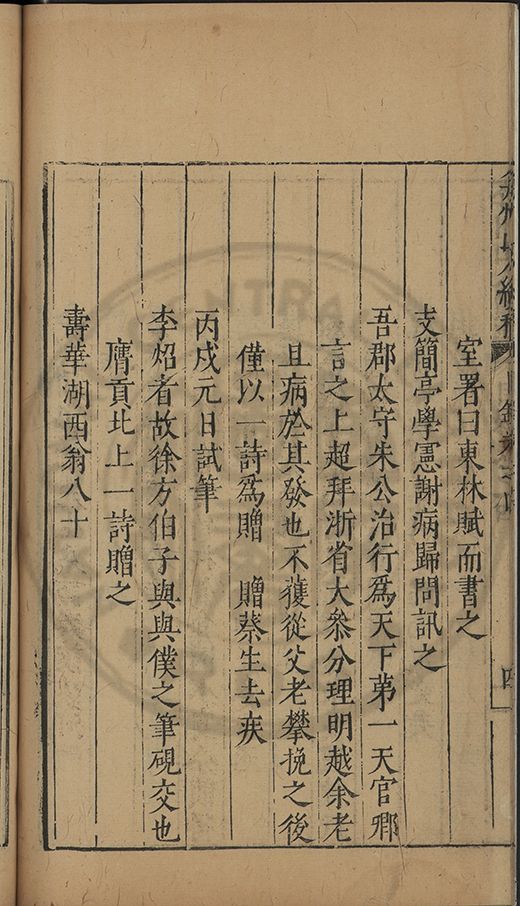 室署曰東林賦而書之
支簡亭學憲謝病歸問訊之
吾郡太守朱公治行爲天下第一天官卿
言之上超拜浙省大叅分理明越余老
且病於其發也不獲從父老攀挽之後
僅以一詩爲贈　贈蔡生去疾
丙戌元日試筆
李炤者故徐方伯子與與僕之筆硯交也
膺貢北上一詩贈之
壽華湖西翁八十